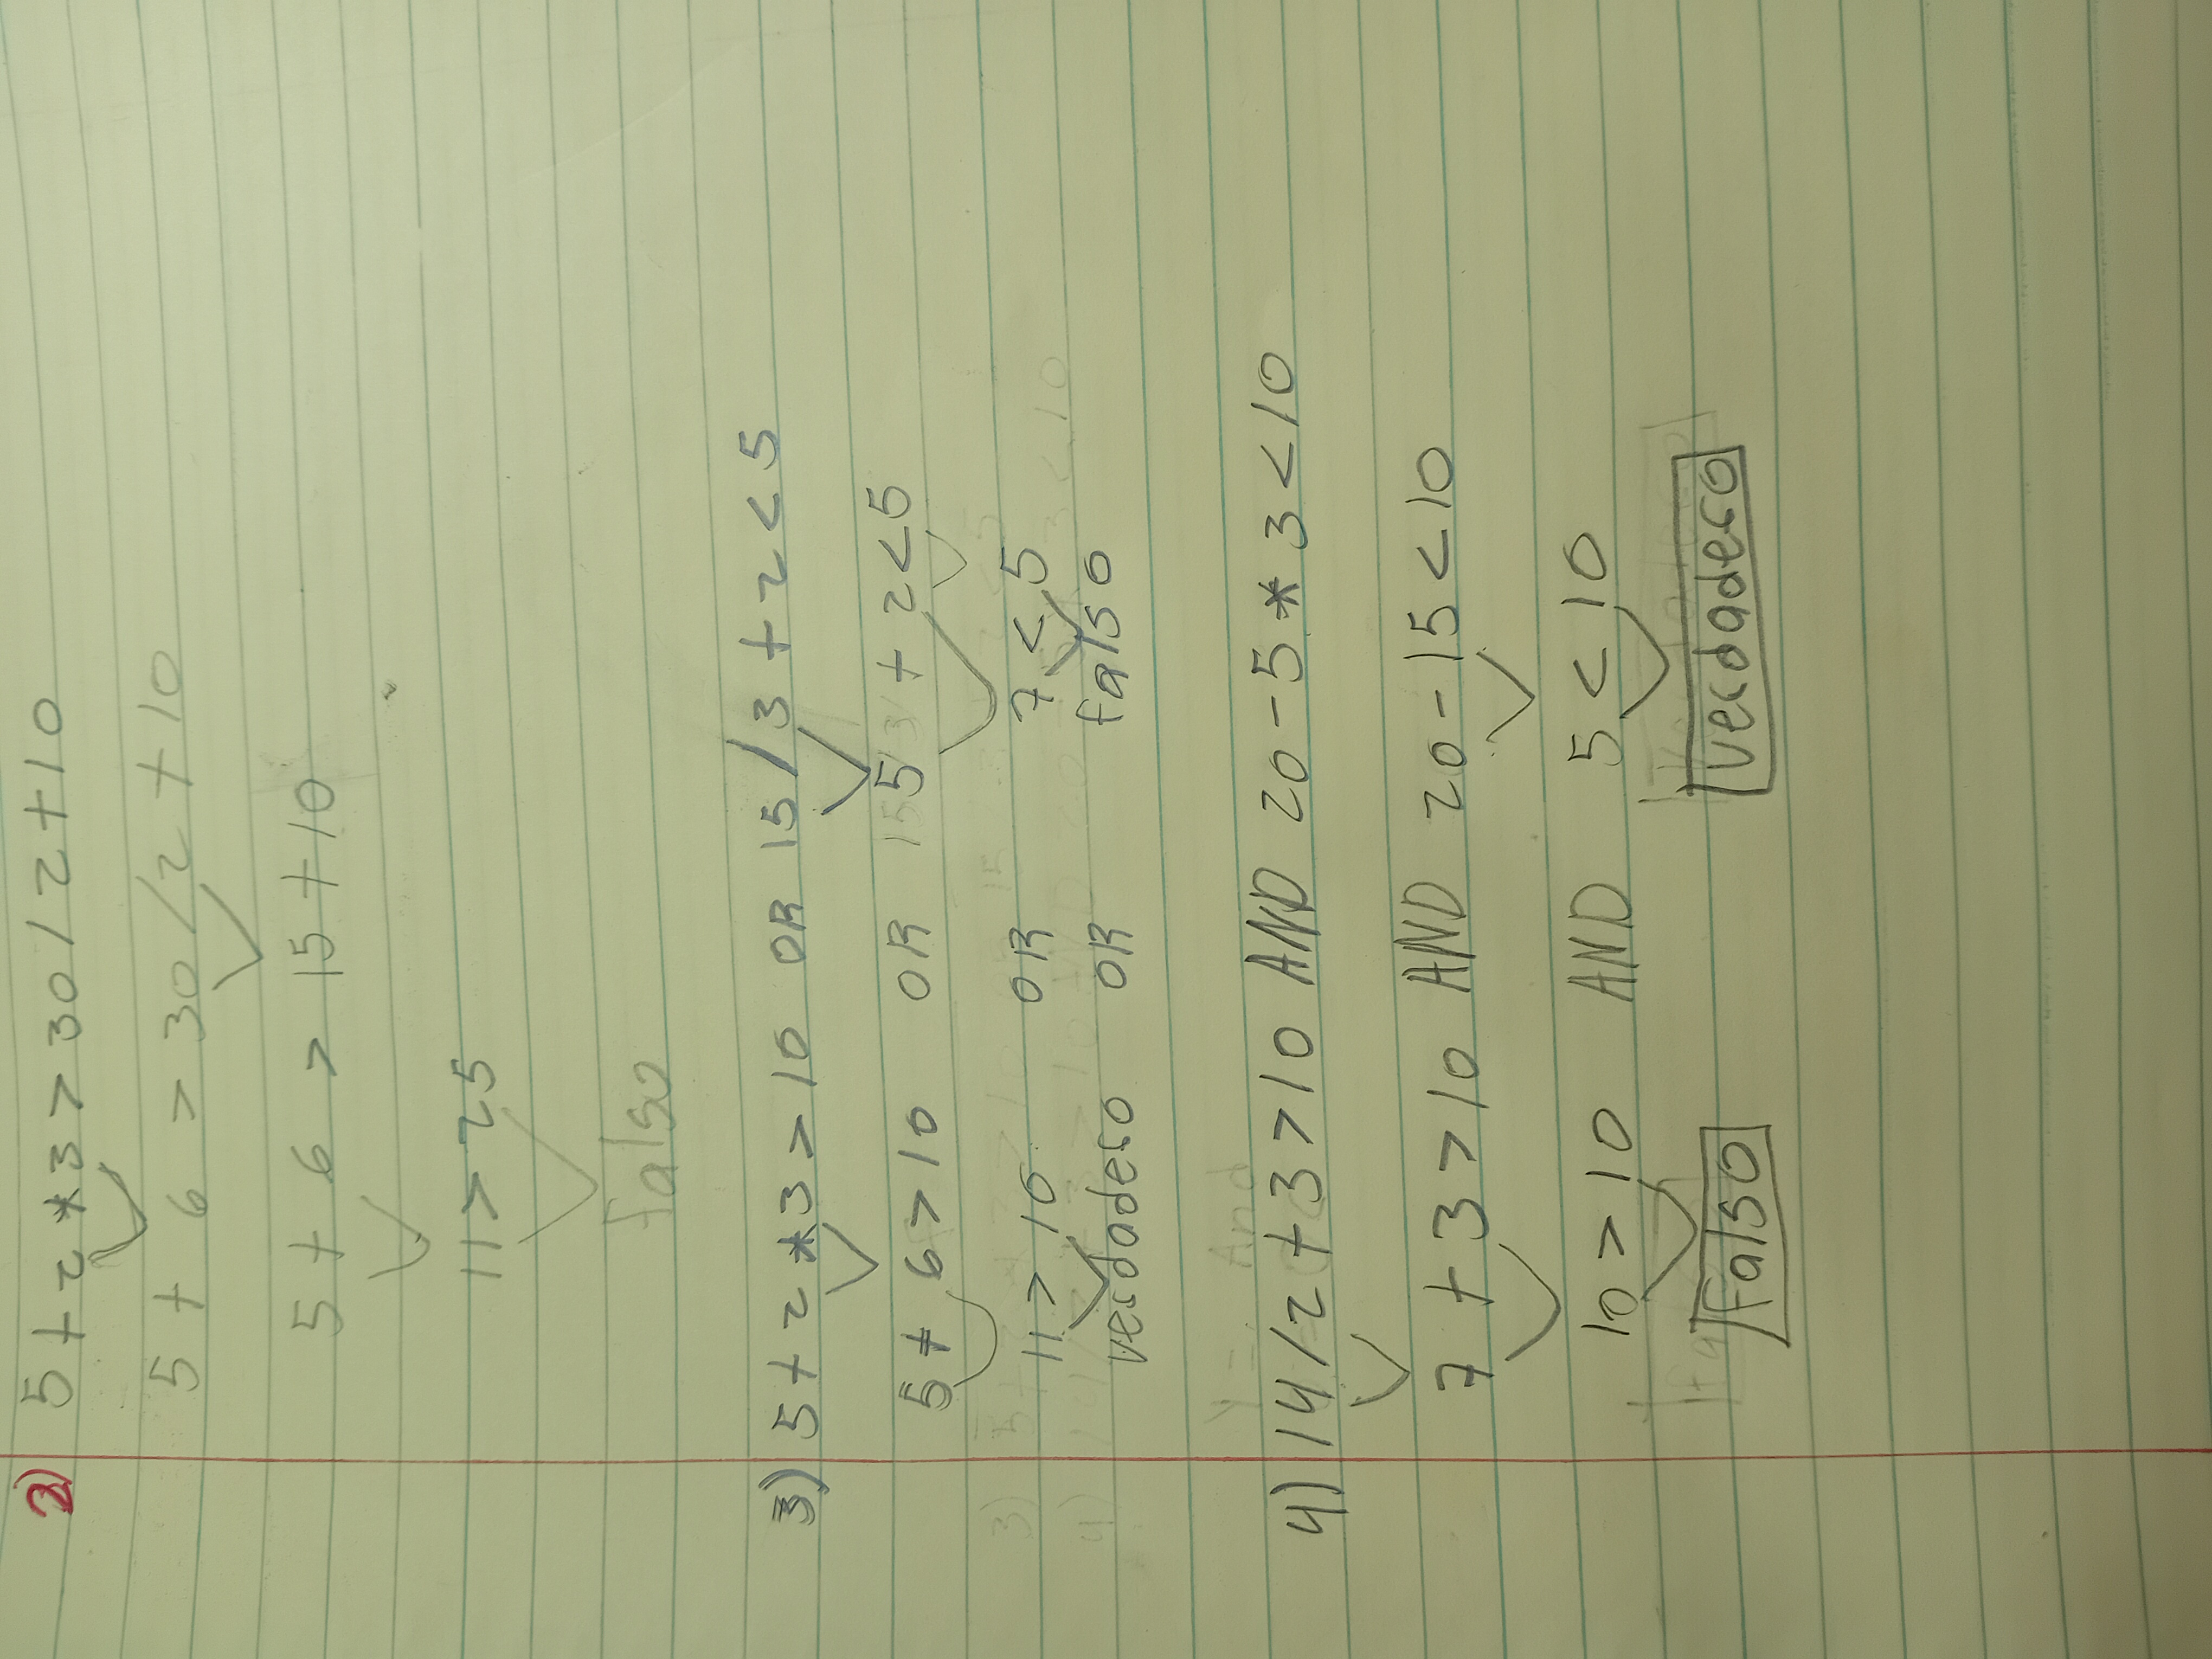 2) 5+2*3>30/2+10
5 + 6 > 30/2 + 10
5 + 6 > 15+10
11 > 25
falso
3) 5+2*3>10 OR 15/3+2<5
5+ 6>10 OR 5 + 2<5
11> 10 OR 7<5
verdadero OR falso
4) 14/2+3>10 AND 20-5*3<10
7+3>10 AND 20-15<10
10>10 AND 5<10
falso verdadero